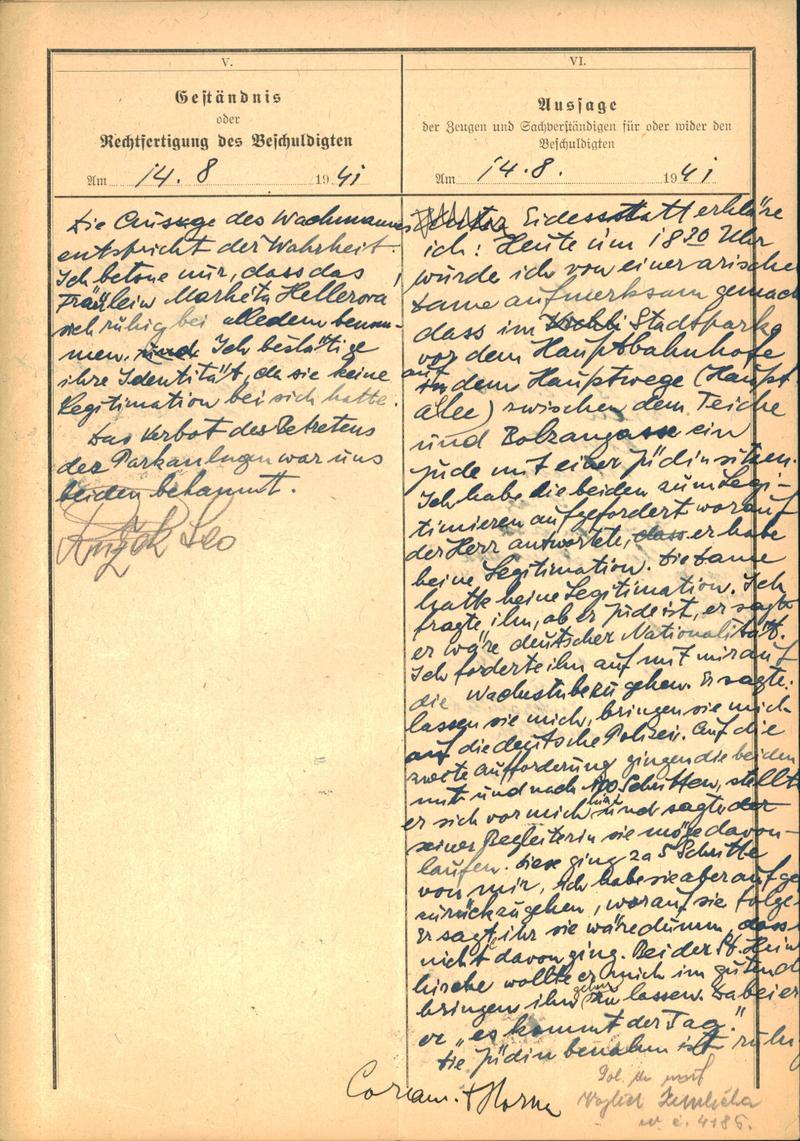 V.
Geständnis
oder
Rechtfertigung des Beschuldigten
Am 14. 8 1941
Die Aussage des Wachmannes
entspricht der Wahrheit.
Ich betone nur, dass das
Fräulein Markéta Hellerová
sich ruhig bei alledem benom-
men. Ich bestätige
ihre Identität, da sie keine
Legitimation bei sich hatte.
Das Verbot des Betretens
der Parkanlagen war uns
beiden bekannt.
Leo
VI.
Aussage
der Zeugen und Sachverständigen für oder wider den
Beschuldigten
Am 14. 8. 1941
Eidesstatt erkläre
ich: Heute um 18 20 Uhr
wurde ich von einer arische
Dame aufmerksam gemach
dass im Stadtparke
vor dem Hauptbahnhofe
auf dem Hauptwege (Haupt
allee) zwischen dem Teiche
und Bolzangasse ein
Jude mit einer Jüdin sitzen.
Ich habe die beiden zum Legi-
timieren aufgefordert worauf
der Herr antwortete, dass er habe
keine Legitimation. Die Dame
hatte keine Legitimation. Ich
fragte ihn, ob er Jude ist, er sagte
er wäre deutscher Nationalität.
Ich forderte ihn auf mit mir auf
die Wachstube zu gehen. Er sagte:
lassen sie mich, bringen sie mich
auf die deutsche Polizei. Auf die
zweite Aufforderung gingen die beiden
mit und nach 100 Schritten, stellte
er sich vor mich hin und sagte der
seiner Begleiterin sie möge davon-
laufen. Diese ging za 5 Schritte
von mir, ich habe sie aber aufge
zurückzugehen, worauf sie folge
Er sagt ihr sie wäre dumm, dass
nicht davon ging. Bei der St. Hein
kirche wollte er mich im guten d
bringen ihn gehen zu lassen. Dabei er
er „es kommt der Tag."
Die Jüdin benahm sich ruhig
Pol.
č. 4185.